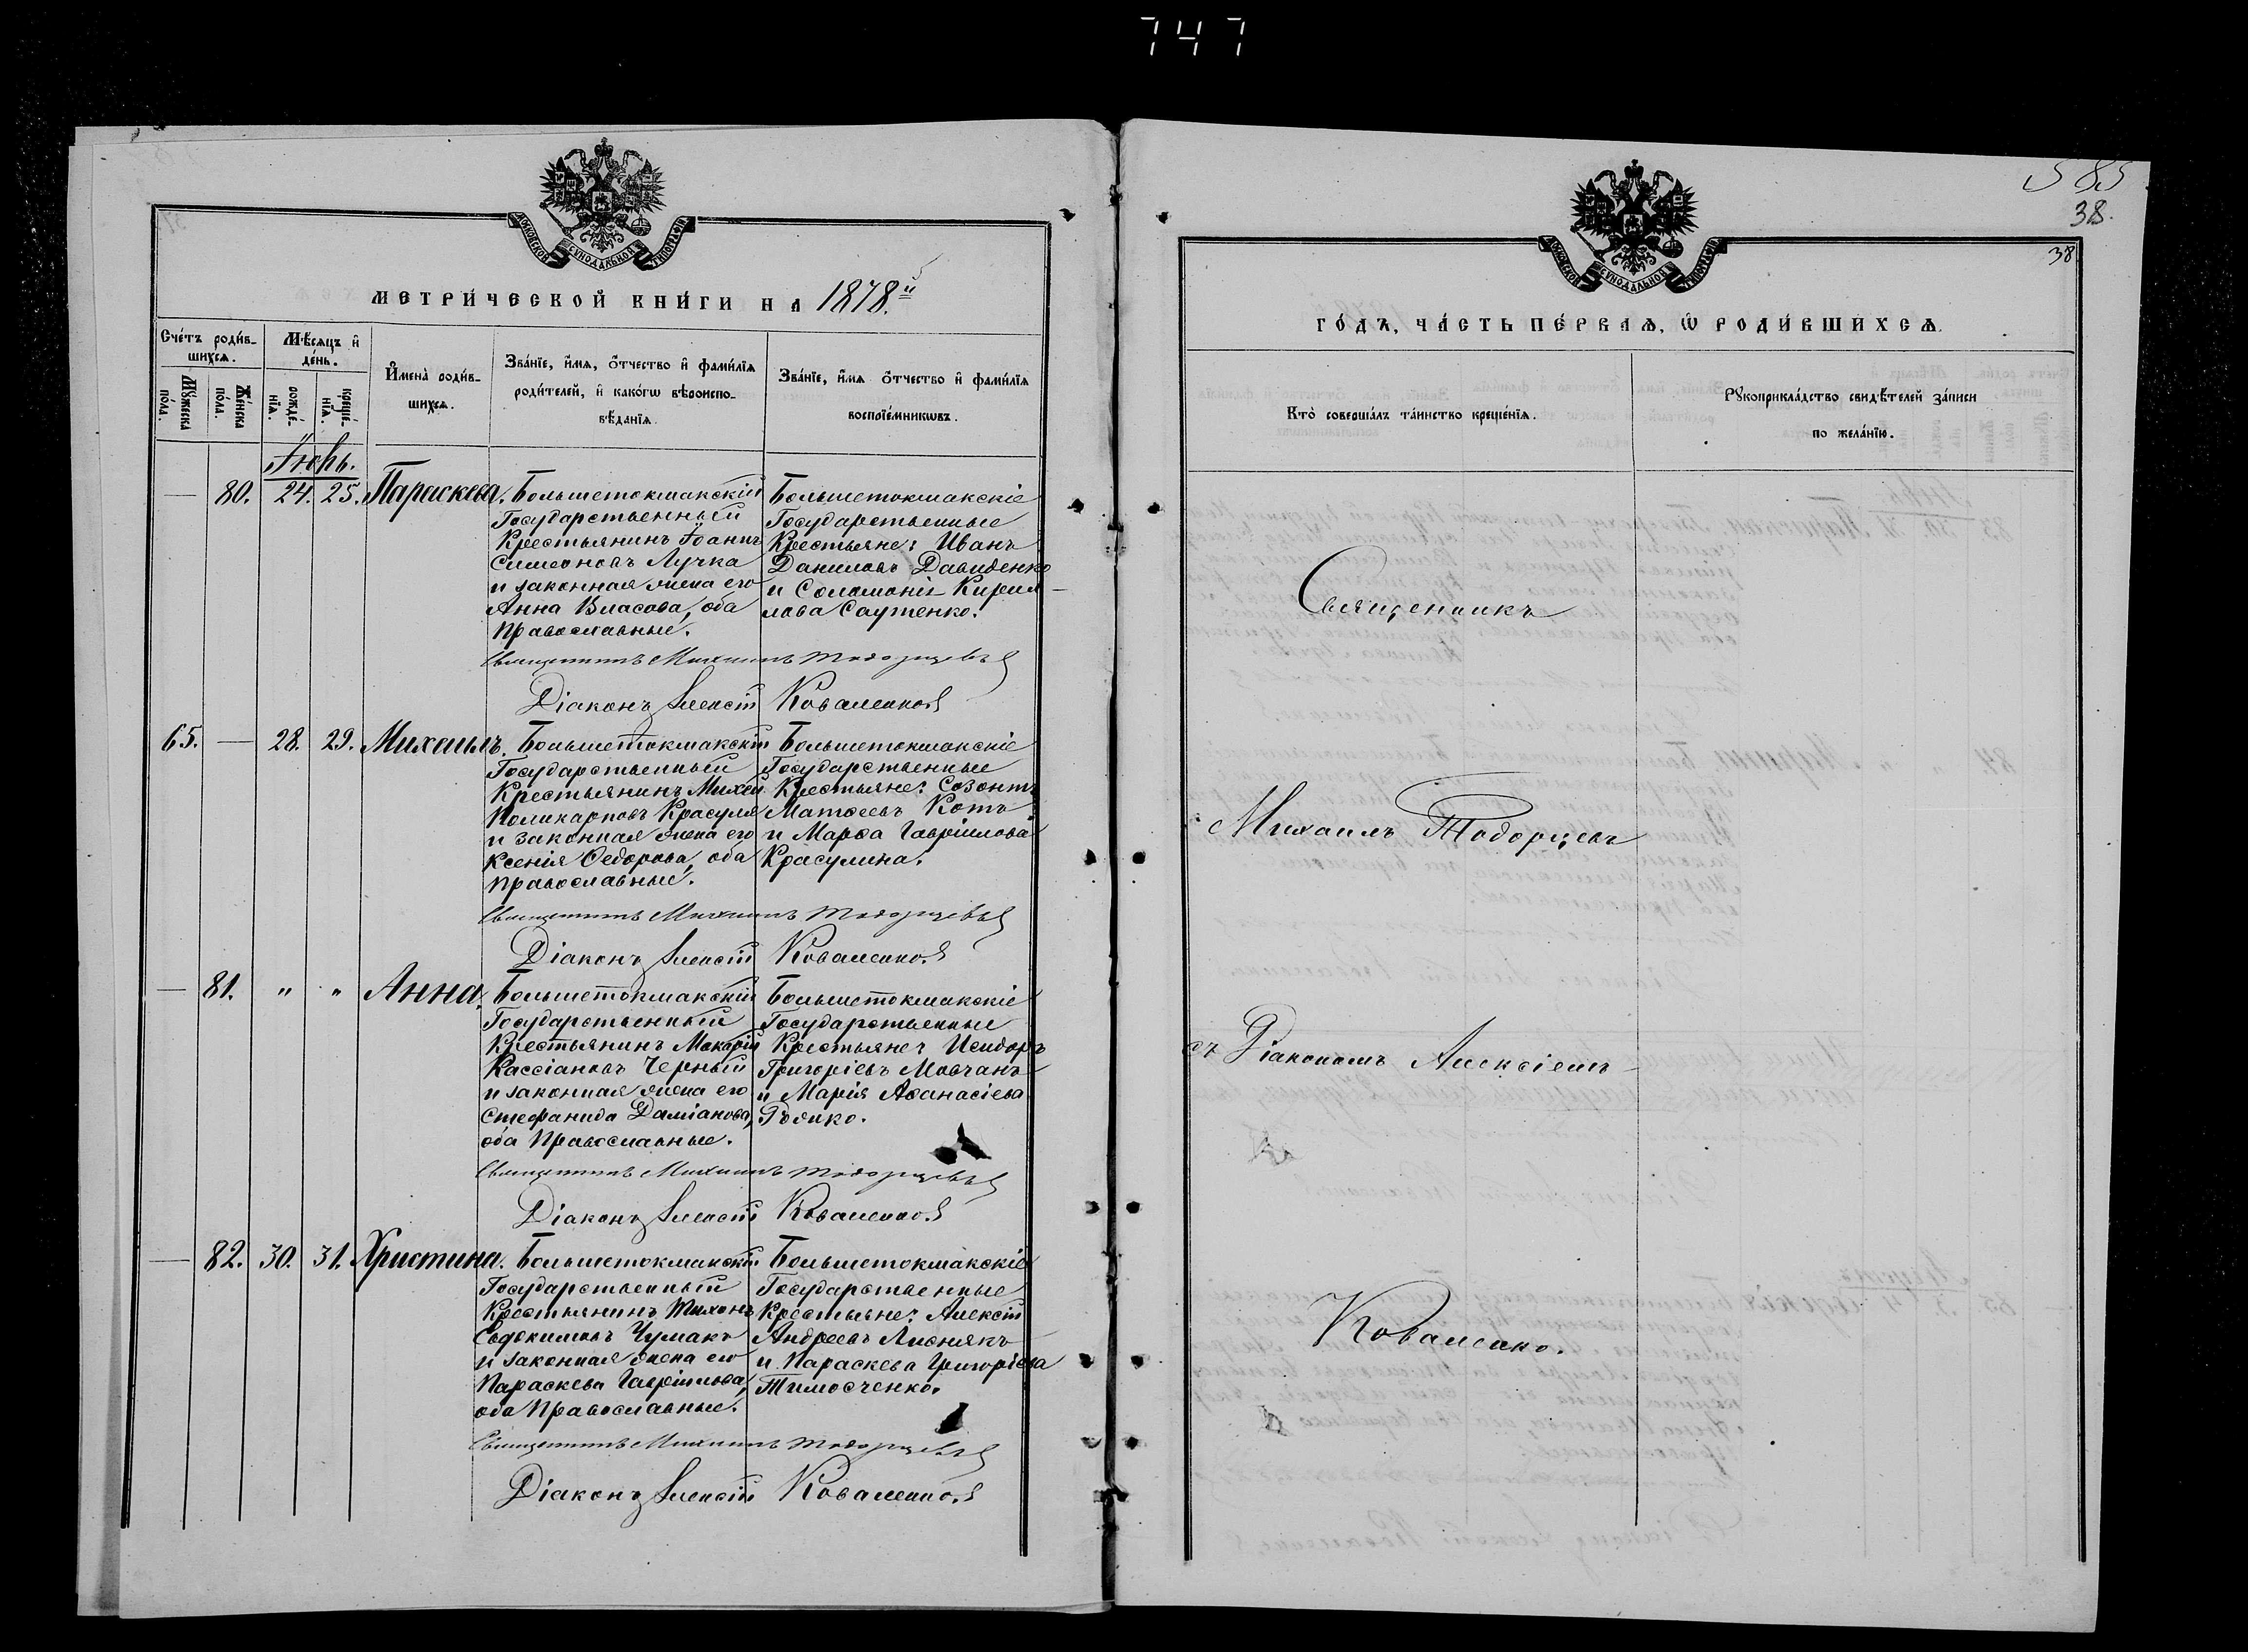 747
МОСКОВСКОЙ СѴНОДАЛЬНОЙ ТИПОГРАФІИ
МЕТРИ́ЧЕСКОЙ КНИ́ГИ НА 1878.й
Сче́тъ роди́в-
шихсѧ.
Мѣ́сѧцъ и҆
де́нь.
Мꙋ́жеска
по́ла.
Же́нска
по́ла.
рожде́-
нїѧ.
креще́-
нїѧ.
И҆мена̀ роди́в-
шихсѧ.
Зва́нїе, и҆́мѧ, ѻ҆́тчество и҆ фами́лїѧ
роди́телей, и҆ како́гѡ вѣроиспо-
вѣ́данїѧ.
Зва́нїе, и҆́мѧ ѻ҆́тчество и҆ фами́лїѧ
воспрїе́мникѡвъ.
Іюль.
— 80. 24. 25. Параскева. Большетокмакскій
Государственный
Крестьянинъ Іоаннъ
Симеоновъ Лучка
и законная жена его
Анна Власова, оба
православные.
Большетокмакскіе
Государственные
Крестьяне: Иванъ
Даниловъ Давиденко
и Соломонія Кирил-
лова Саутенко.
Священникъ Михаилъ Тодорцевъ
Діаконъ Алексій Коваленко
65. — 28. 29. Михаилъ. Большетокмакскій
Государственный
Крестьянинъ Михей
Поликарповъ Красуля
и законная жена его
Ксенія Ѳедорова, оба
православные.
Большетокмакскіе
Государственные
Крестьяне: Созонтъ
Матѳеевъ Котъ
и Марѳа Гавріилова
Красулина.
Священникъ Михаилъ Тодорцевъ
Діаконъ Алексій Коваленко
— 81. " " Анна. Большетокмакскій
Государственный
Крестьянинъ Макарій
Кассіановъ Черный
и законная жена его
Стефанида Даміанова,
оба Православные.
Большетокмакскіе
Государственные
Крестьяне: Исидоръ
Григоріевъ Мовчанъ
и Марія Аѳанасіева
Священникъ Михаилъ Тодорцевъ
Діаконъ Алексій Коваленко
— 82. 30. 31. Христина. Большетокмакскій
Государственный
Крестьянинъ Тихонъ
Евдокимовъ Чумакъ
и законная жена его
Параскева Гавріилова,
оба Православные.
Большетокмакскіе
Государственные
Крестьяне: Алексій
Андреевъ Лиснякъ
и Параскева Григоріева
Тимосченко.
Священникъ Михаилъ Тодорцевъ
Діаконъ Алексій Коваленко
585
38.
38
МОСКОВСКОЙ СѴНОДАЛЬНОЙ ТИПОГРАФІИ
ГО́ДЪ, ЧА́СТЬ ПЕ́РВАѦ, Ѡ҆ РОДИ́ВШИХСѦ.
Кто̀ соверша́лъ та́инство креще́нїѧ.
Рꙋкоприкла́дство свидѣ́телей за́писи
по жела́нїю.
Священникъ
Михаилъ Тодорцевъ
съ Діакономъ Алексіемъ
Коваленко.